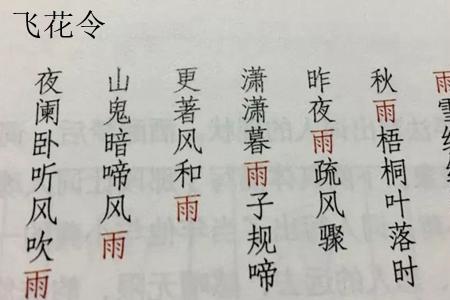 飞花令
雨雪
秋雨梧桐叶落时
昨夜雨疏风骤
潇潇暮雨子规啼
更著风和雨
山鬼暗啼风雨
夜阑卧听风吹雨